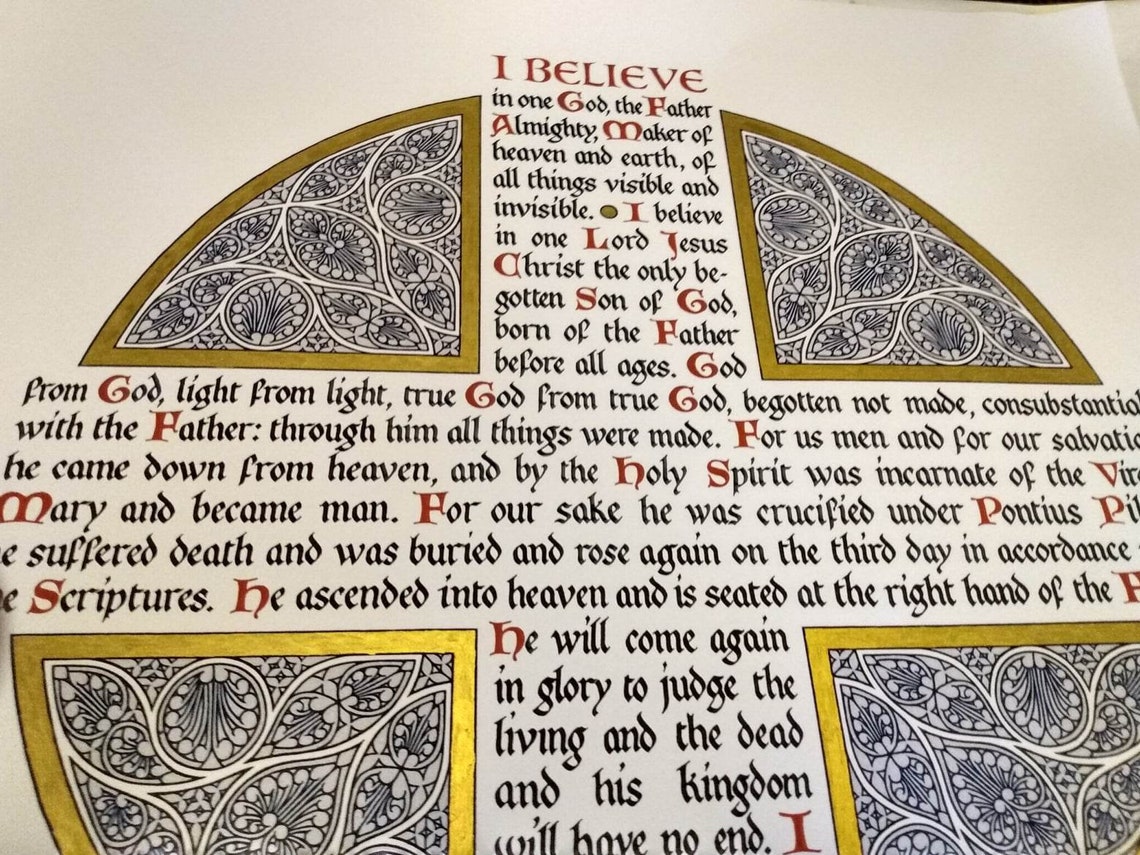 I BELIEVE
in one God, the Father
Almighty, Maker of
heaven and earth, of
all things visible and
invisible. I believe
in one Lord Jesus
Christ the only be-
gotten Son of God,
born of the Father
before all ages. God
from God, light from light, true God from true God, begotten not made, consubstantial
with the Father: through him all things were made. For us men and for our
he came down from heaven, and by the Holy Spirit was incarnate of the
Mary and became man. For our sake he was crucified under Pontius
suffered death and was buried and rose again on the third day in accordance
Scriptures. He ascended into heaven and is seated at the right hand of the
He will come again
in glory to judge the
living and the dead
and his kingdom
will have no end. I